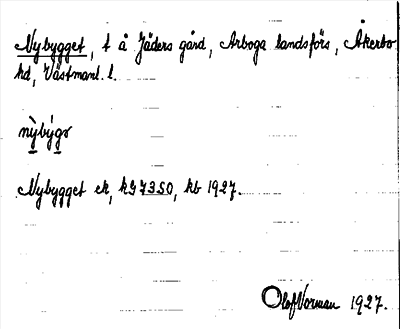 Nybygget, t å Jäders gård, Arboga landsförs, Åkerbo
hd, Västmanl. l.
nỳbýgr
Nybygget ek, kg 7350, kb 1927.
Olof Vorman 1927.